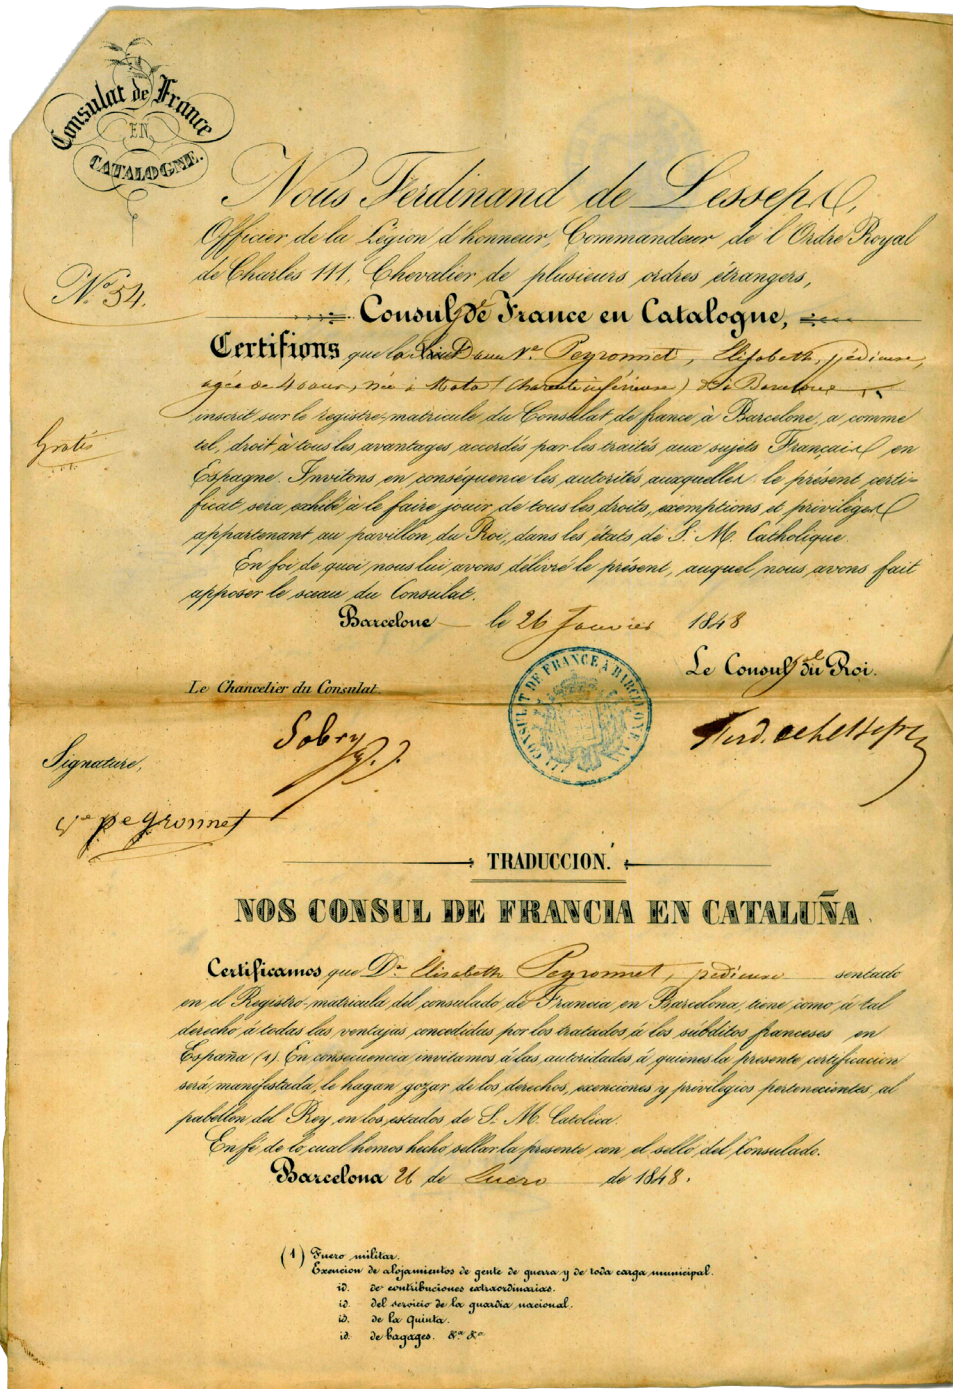 Consulat de France
EN
CATALOGNE.
Nous Ferdinand de Lesseps,
Officier de la Légion d'honneur, Commandeur de l'Ordre Royal
de Charles III, Chevalier de plusieurs ordres étrangers,
No. 54.
Consul de France en Catalogne,
Certifions que la Dame Ve. Peyronnet, Elisabeth, pédicure,
agée de 40 ans, née à (Charente inférieure) Barcelone
inscrit sur le registre-matricule du Consulat de france à Barcelone, a comme
Gratis
tel, droit à tous les avantages accordés par les traités aux sujets Français en
Espagne. Invitons en conséquence les autorités auxquelles le présent certi-
ficat sera exhibé à le faire jouir de tous les droits, exemptions et privilèges
appartenant au pavillon du Roi, dans les états de S. M. Catholique.
En foi de quoi, nous lui avons délivré le présent, auquel nous avons fait
apposer le sceau du Consulat.
Barcelone le 26 Janvier 1848
Le Consul du Roi.
Le Chancelier du Consulat
CONSULAT DE FRANCE À BARCELONE
Sobry
Ferd. de Lesseps
Signature,
Ve peyronnet
TRADUCCION.
NOS CONSUL DE FRANCIA EN CATALUÑA.
Certificamos que Da. Elisabeth Peyronnet, pédicure sentado
en el Registro-matricula del consulado de Francia en Barcelona, tiene como à tal
derecho à todas las ventajas concedidas por los tratados à los súbditos franceses en
España (1). En consecuencia invitamos à las autoridades à quienes la presente certificacion
será manifestada, le hagan gozar de los derechos, exenciones y privilegios pertenecientes al
pabellon del Rey, en los estados de S. M. Catolica.
En fé de lo cual hemos hecho sellar la presente con el sello del Consulado.
Barcelona 26 de Enero de 1848.
(1) Fuero militar.
Exencion de alojamientos de gente de guerra y de toda carga municipal.
id. de contribuciones extraordinarias.
id. del servicio de la guardia nacional.
id. de la Quinta.
id. de bagages. &a. &a